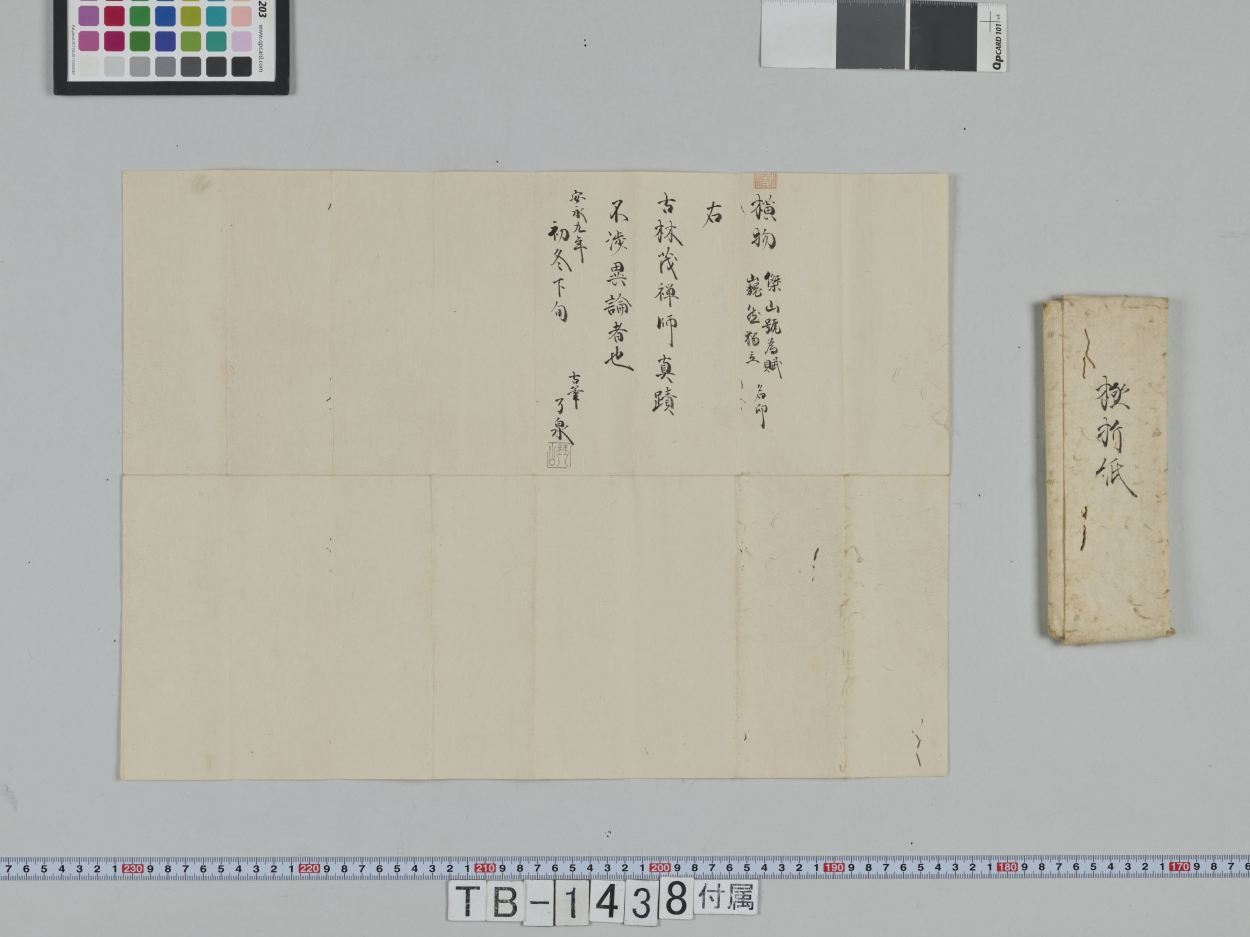 横物
傑山號為賦
巍然獨立
名印
右
古林茂禅師真蹟
不渉異論者也
安永九年
初冬下旬
古筆
了泉
極折紙
203
www.qpcard.com
QPCARD 101 v4
7 6 5 4 3 2 1 230 9 8 7 6 5 4 3 2 1 220 9 8 7 6 5 4 3 2 1 210 9 8 7 6 5 4 3 2 1 200 9 8 7 6 5 4 3 2 1 190 9 8 7 6 5 4 3 2 1 180 9 8 7 6 5 4 3 2 1 170 9 8 7 6
TB-1438付属